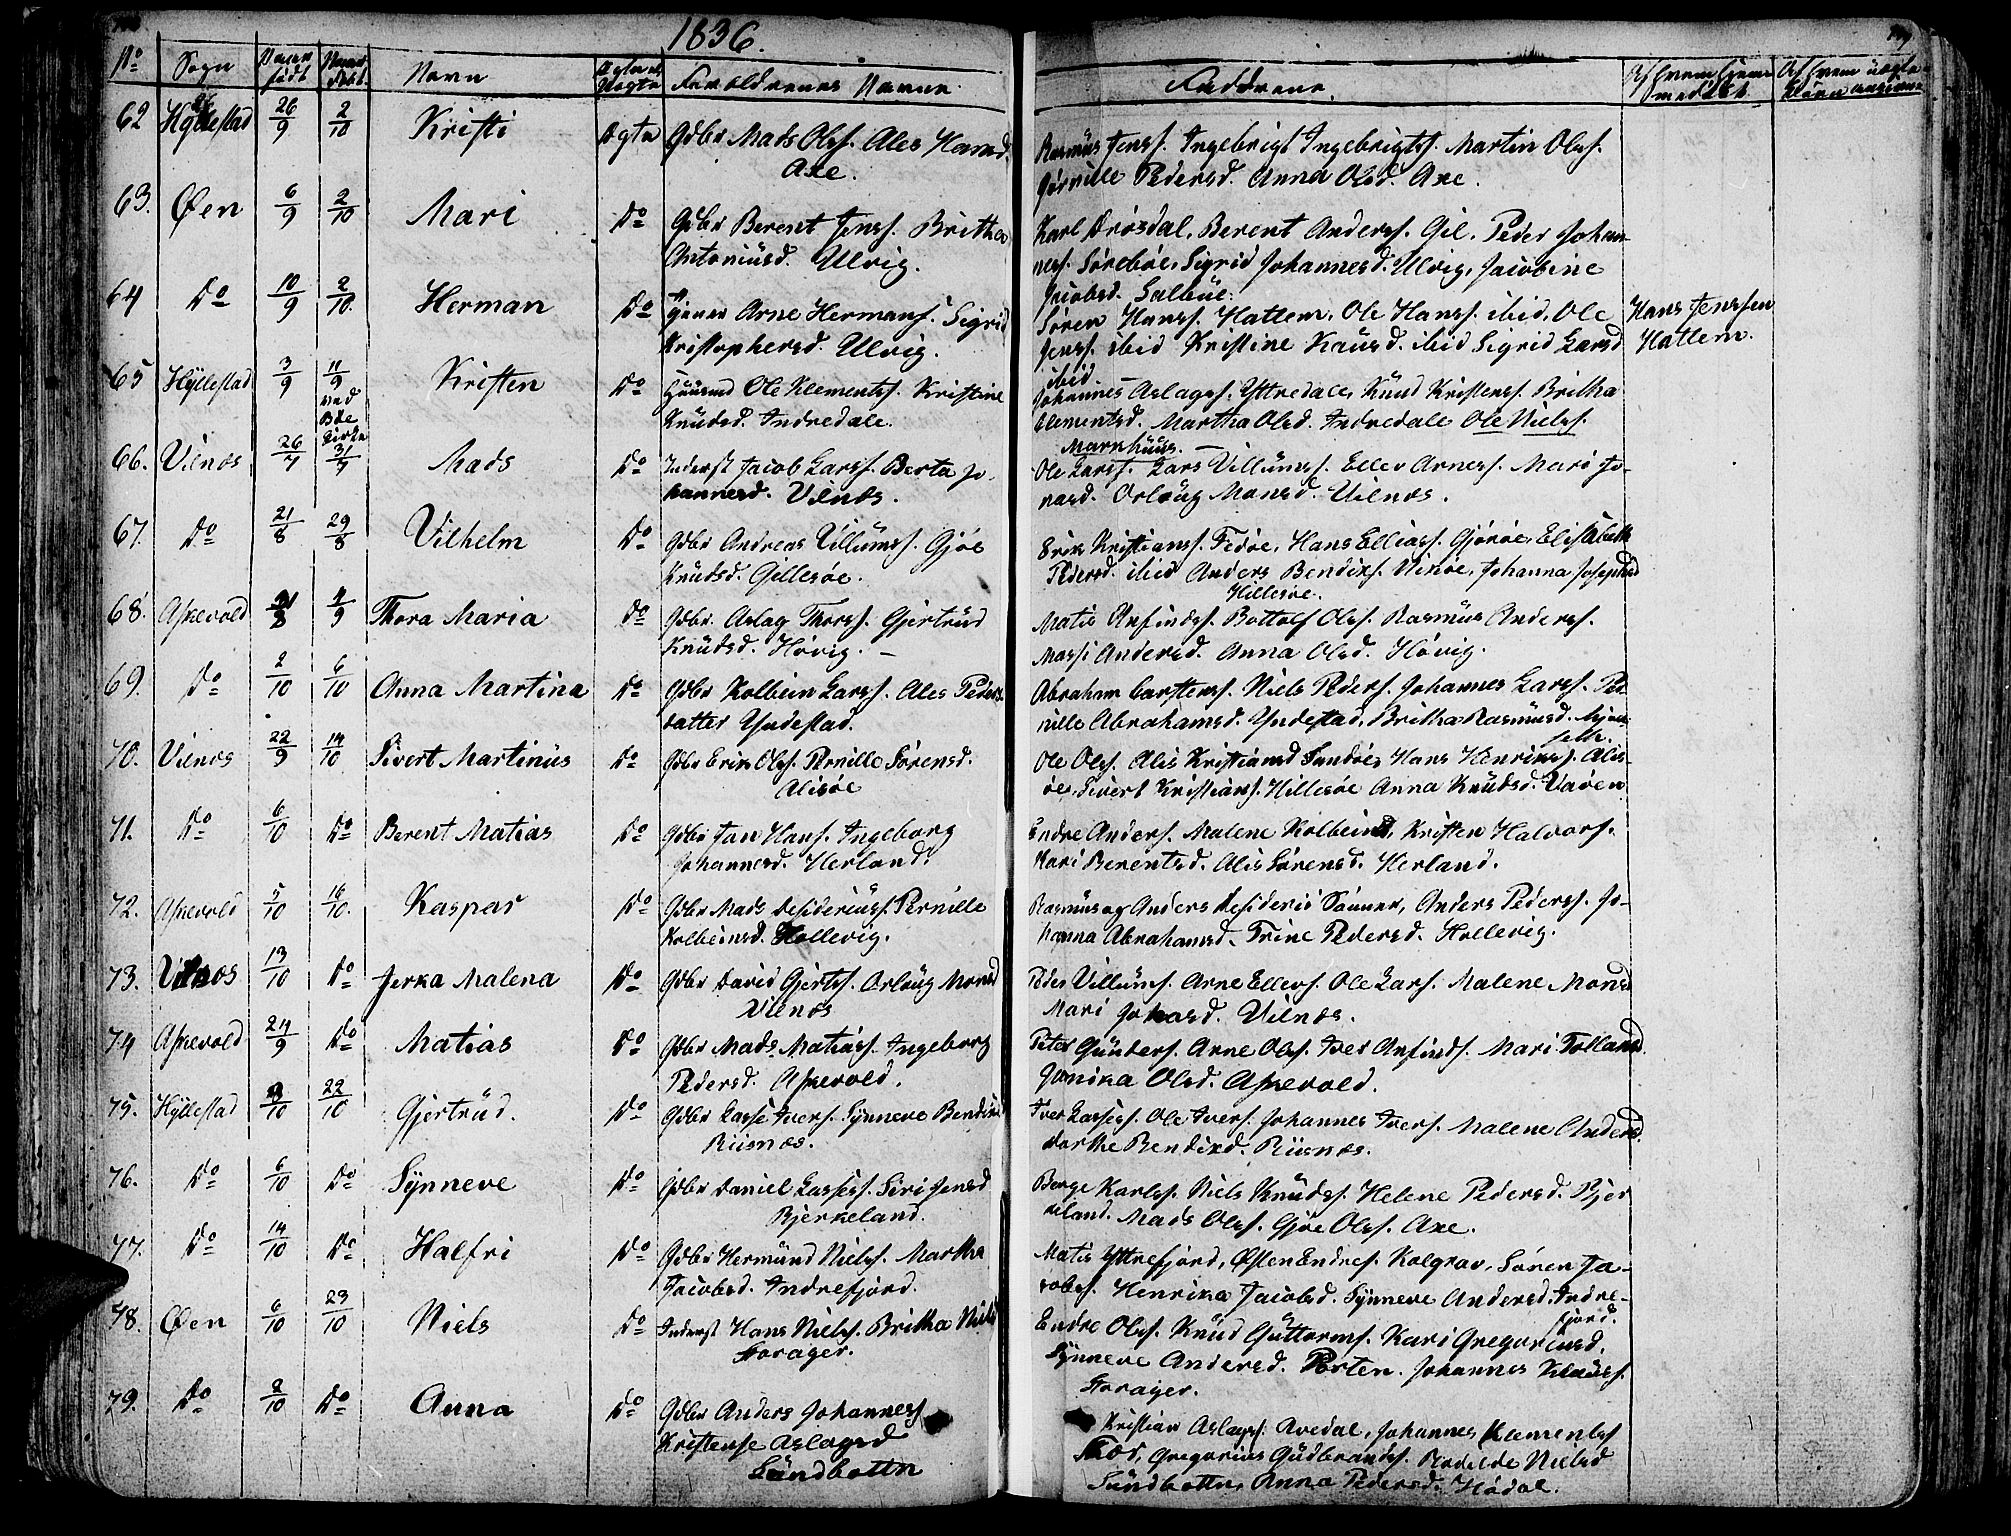 1836.
No Sogn Naar født Naar døbt Navn Ægte el. Uegte Forældrenes Navne.
Faddrene.
62 Hyllestad 26/9 2/10 Kristi Ægte Gdbr Mads Olss. Ales Hansd.
Axe.
Rasmus Jenss. Ingebrigt Ingebrigtss. Martin Olss.
Pedersd. Anna Olsd. Axe.
63. Øen 6/9 2/10 Mari Do Gdbr Berent Jenss. Britha
Antoniusd. Ulvig.
Karl Drøsdal, Berent Anderss. Gil, Peder Johan-
ness. Sørebøe, Sigrid Johannesd. Ulvig, Jacobine
Jacobsd. Salbue.
64 Do 10/9 2/10. Herman Do Arne Hermans. Sigrid
Kristophersd. Ulvig.
Søren Hanss. Hattem, Ole Hanss. ibid, Ole
Jenss. ibid Kristine Knusd. ibid Sigrid Larsd
ibid
Hans Jenssen
Hattem.
65 Hyllestad 3/9 11/9 ved Bøe Kirke Kristen Do Huusmd Ole Klementss. Kristine
Knudsd. Indredale.
Johannes Aslagss. Yttredale, Knud Kristenss. Britha
Clementsd. Martha Olsd. Indredale Ole Nielss.
Marnhuus.
66. Vilnæs 26/7 31/7 Mads Do Inderst Jacob Larss. Berta Jo-
hannesd. Vilnæs.
Ole Larss. Lars Villumss. Eller Arness. Mari Jo-
nasd. Orloug Monsd. Vilnæs.
67. Do 21/8 29/8 Vilhelm Do Gdbr Andreas Villumss. Gjøe
Knudsd. Gillesøe.
Erik Kristianss. Fedøe, Hans Elliass. Gjørøe, Elisabeth
Pedersd. ibid Anders Bendiks. Vixøe, Johanna Josephsd
Hillesøe.
68. Askevold 4/9 Thora Maria Do Gdbr. Aslag Thorss. Gjertrud
Knudsd. Høvig. —
Matis Anfindss. Bottolf Olss. Rasmus Anderss.
Massi Andersd. Anna Olsd. Høvig.
69. Do 2/10 6/10 Anna Martina Do Gdbr Kolbein Larss. Ales Peders-
datter Yndestad.
Abraham Carstenss. Niels Peders. Johannes Larss. Per-
nille Abrahamsd. Yndestad, Britha Rasmusd.
70. Vilnæs 22/9 14/10 Sivert Martinus Do Gdbr Erik Olss. Pernille Sørensd.
Alisøe
Ole Olss. Alis Kristiansd Sandøe, Hans Henrikss. Alis-
øe, Sivert Kristians. Hillesøe Anna Knudsd. Varøen
71. Do 6/10 Do Berent Matias Do Gdbr Jan Hans. Ingeborg
Johannesd. Herland.
Endre Anders. Malene Kolbeinsd, Kristen Halvors.
Kari Berentsd. Alis Sørensd. Herland.
72. Askevold 5/10 16/10. Kaspar Do Gdbr Mads Desideriuss. Pernille
Kolbeinsd. Hollevig.
Rasmus og Anders Desiderii Sønner, Anders Pederss. Jo-
hanna Abrahamsd. Trine Pedersd. Hollevig.
73. Vilnæs 13/10 Do Jerka Malena Do Gdbr David Gjertss. Orloug Monsd
Vilnæs
Peder Villums. Arne Ellers. Ole Lars. Malene Monsd
Mari Johasd. Vilnæs.
74 Askevold 24/9 Do Matias Do Gdbr Mads Matiass. Ingeborg
Pedersd. Askevold.
Peter Gunders. Arne Olss. Iver Anfinds. Mari Folland.
Olsd. Askevold.
75. Hyllestad 22/10 Gjertrud. Do Gdbr Lasse Ivers. Synneve Bendixd
Riisnæs.
Iver Lassess. Ole Ivers. Johannes Ivers. Malene Andersd.
Dorthe Bendixd. Riisnæs.
76. Do 6/10 Do Synneve Do Gdbr Daniel Lassess. Siri Jensd
Bjerkeland.
Børge Karlss. Niels Knudss. Helene Pedersd. Bjer
keland. Mads Olss. Gjøe Olss. Axe.
77. Do 14/10 Do Halfri Do Gdbr Hermund Nielss. Martha
Jacobsd. Indrefjord.
Matis Yttrefjord, Østen Endres. Kolgrav, Søren Ja-
cobss. Henrika Jacobsd. Synneve Andersd. Indre-
fjord.
78. Øen 6/10 23/10 Niels Do Inderst Hans Nielss. Britha Nielsd
Storager.
Endre Olss. Knud Guttorms. Kari Gregoriusd.
Synneve Andersd. Porten. Johannes Klaus.
Storager.
79. Do 2/10 Do Anna Do Gdbr Anders Johannes
Kristense Aslagsd
Sundbottn
Kristian Aslags. Avedal, Johannes Klementss
Gregorius Gudbrands. Nielsd
Sundbottn, Anna Pedersd. Hødal.